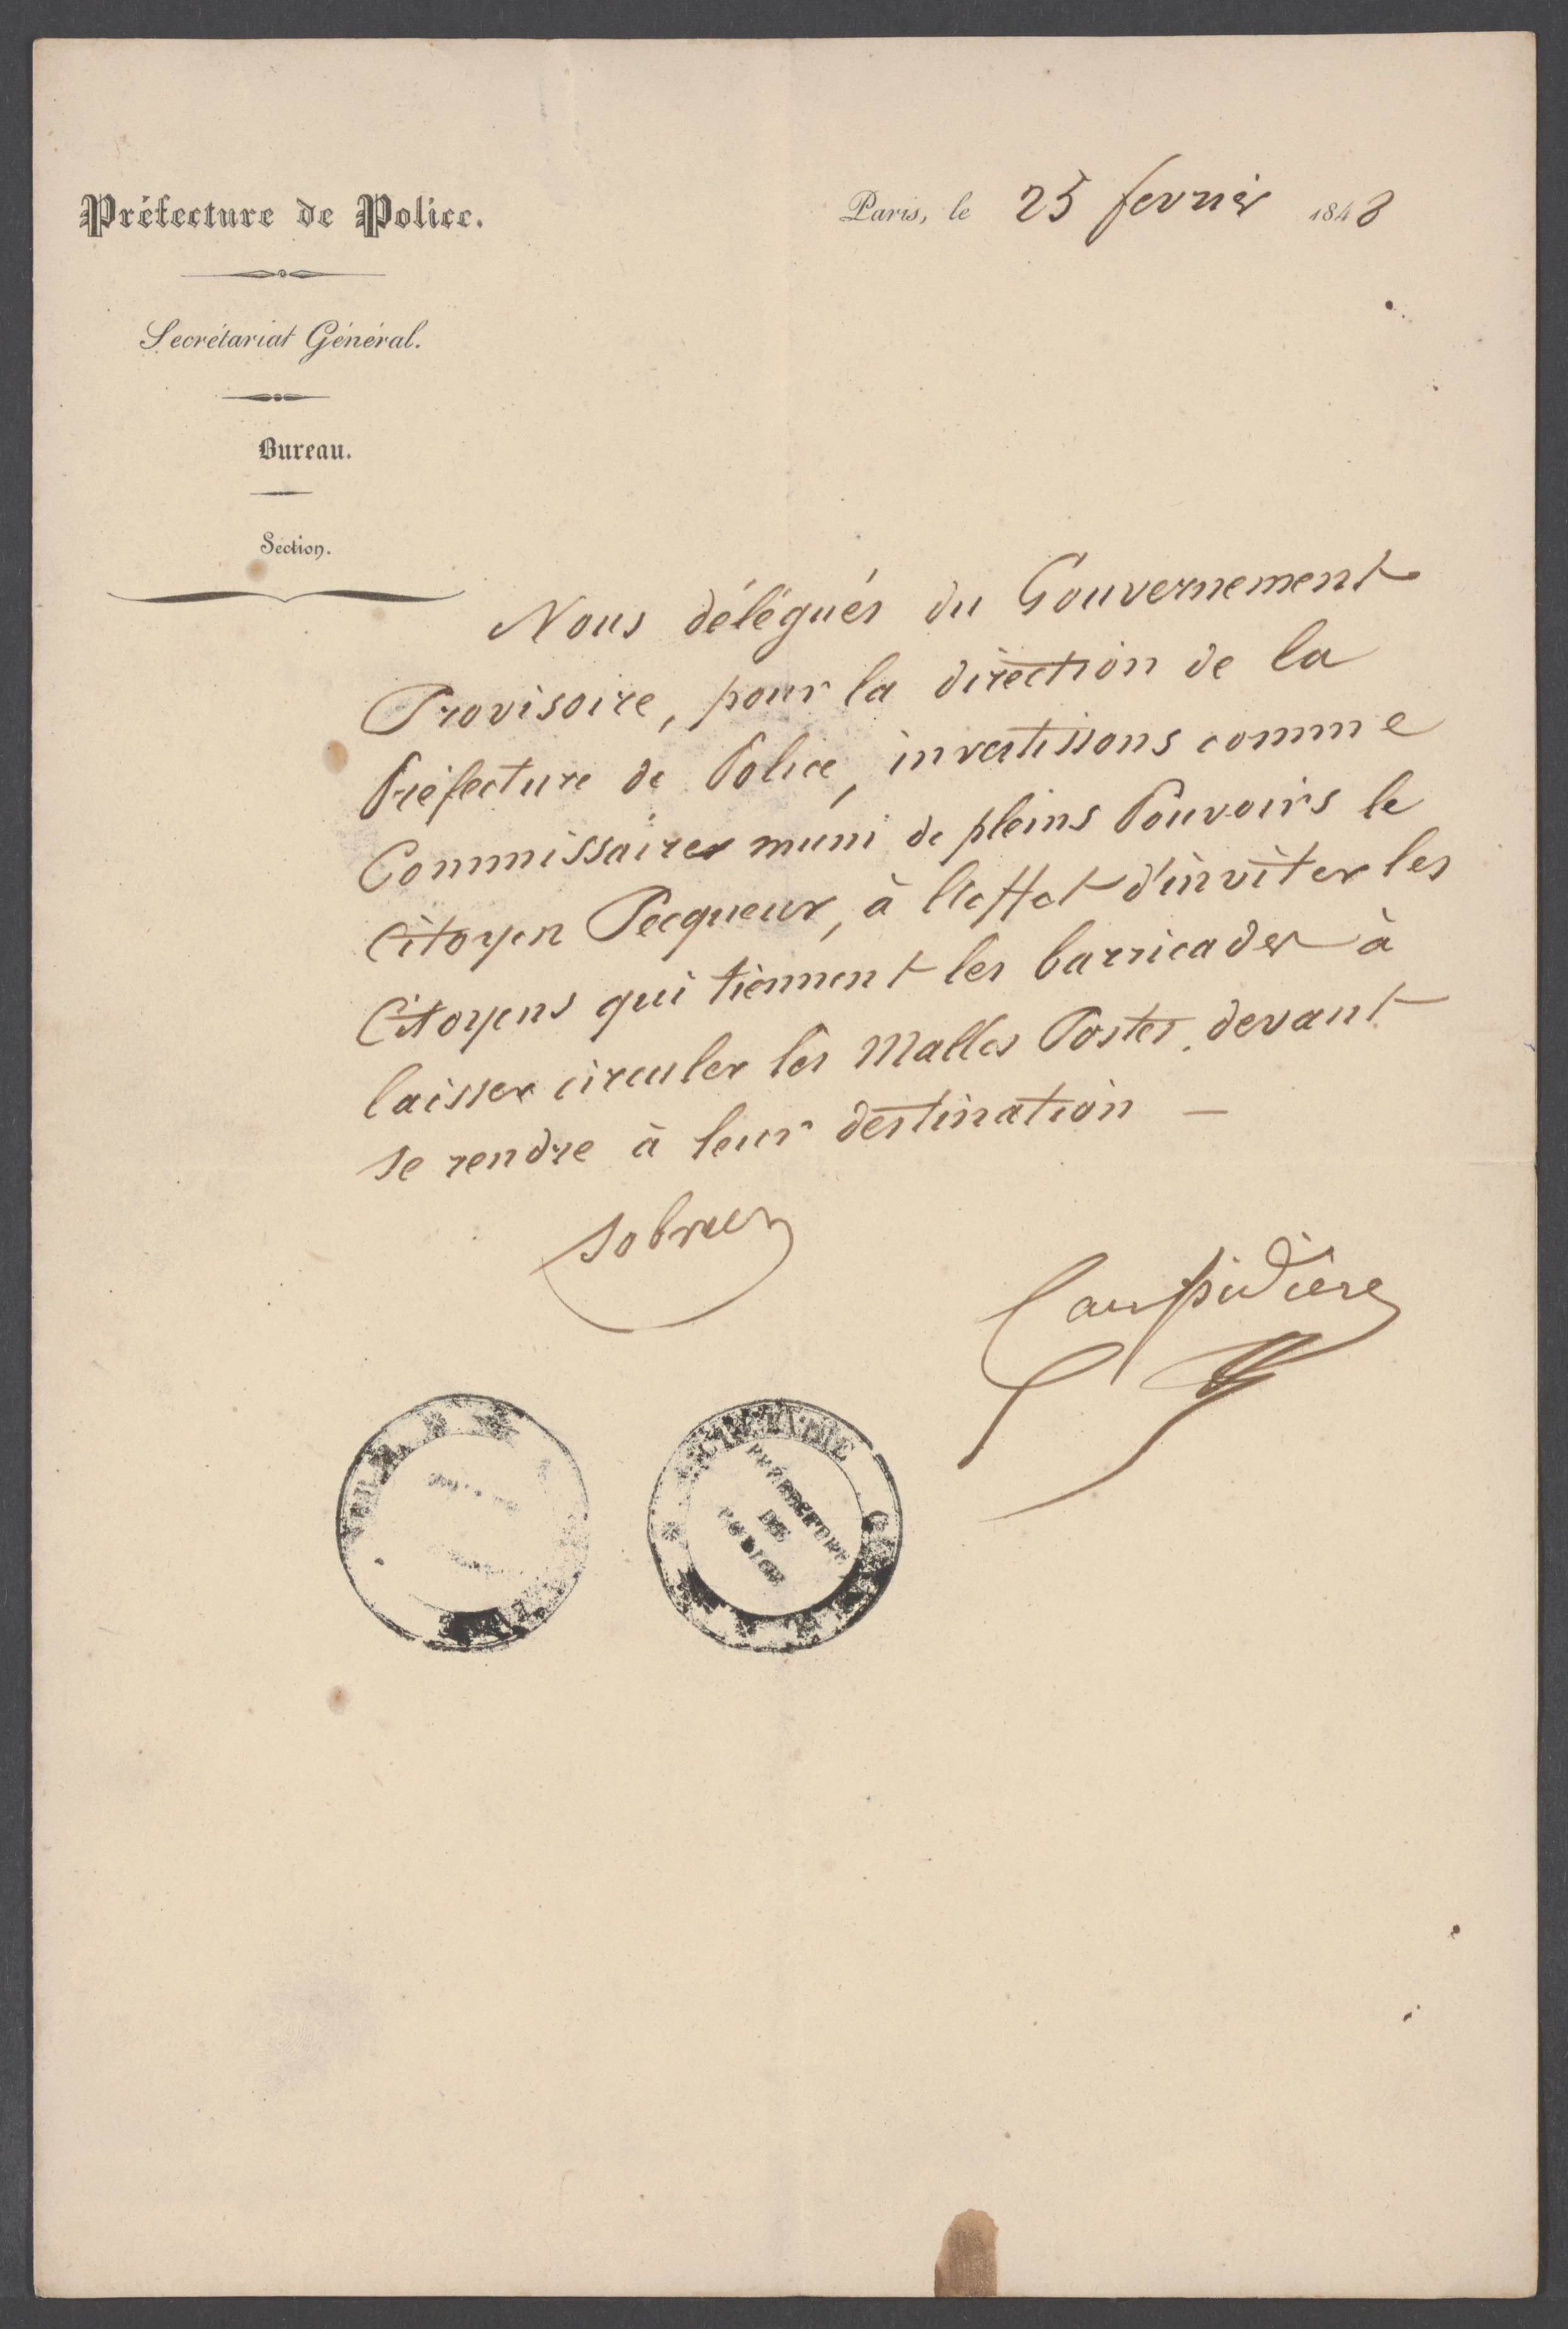 Préfecture de Police.
Paris, le 25 fevrier 1848
Secrétariat Général.
Bureau.
Section.
Nous délégués du Gouvernement
Provisoire, pour la direction de la
Préfecture de Police, investissons comme
Commissaire muni de pleins Pouvoirs le
Citoyen Pecqueur, à l'effet d'inviter les
Citoyens qui tiennent les barricades à
laisser circuler les Malles Postes, devant
se rendre à leur destination —
Sobrier
Caussidière
PRÉFECTURE
DE
POLICE